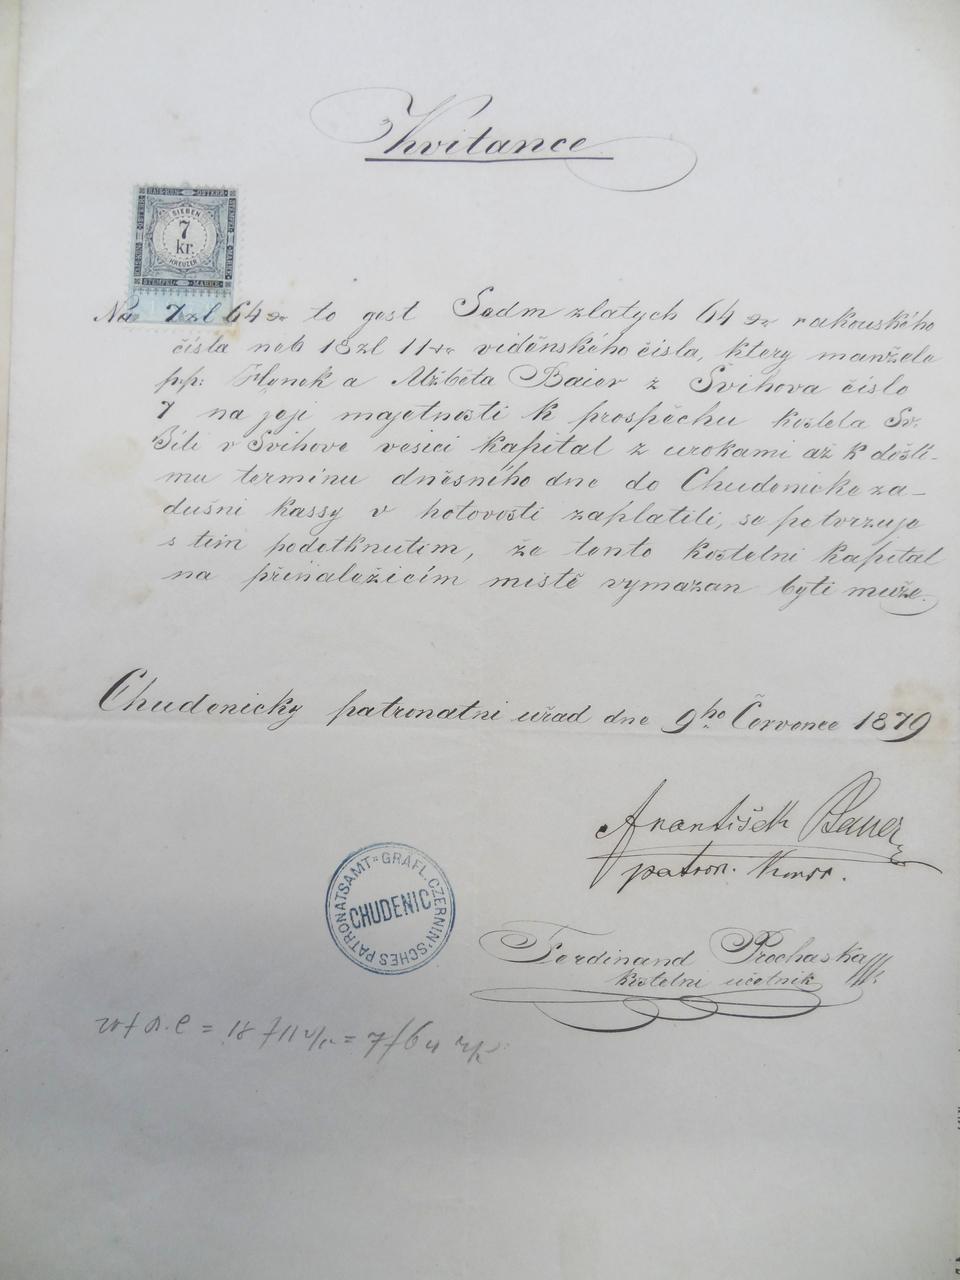 Kvitance
KAIS. KÖN. ÖSTERR. STEMPEL MARKE
SIEBEN
7
kr.
KREUZER
Na 7 zl 64 kr to gest Sedm zlatych 64 kr rakouského
čisla neb 18 zl 11 kr viděnského čisla, ktery manžele
pp: Hynek a Alžběta Baier z Švihova číslo
7 na jeji majetnosti k prospěchu kostela Sv:
Jili v Svihove vesici kapital z urokami až k došlí-
mu terminu dněsního dne do Chudenicke za-
dušni kassy v hotovosti zaplatili, se potvrzuje
s tim podotknutim, že tento kostelni kapital
na přinaležicím mistě vymazan byti muže.
Chudenicky patronatni uřad dne 9ho Července 1879
František Bauer
patron.
PATRONATSAMT = GRÄFL. CZERNIN'SCHES
CHUDENIC
Ferdinand Prochaska
kostelni učetnik
= 18 f 11 = 7 f 64